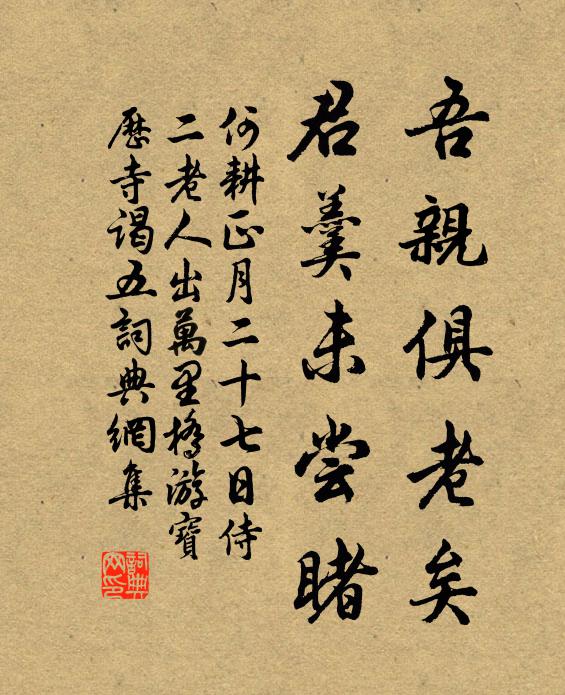 吾親俱老矣
君羹未尝睹
何耕正月二十七日侍
二老人出萬里橋游寶
歷寺謁五詞典網集
詞典
网印